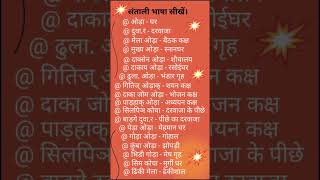 संताली भाषा सीखें।
@ ओड़ा - घर
@ दुवा.र - दरवाजा
@ मेला ओड़ा - बैठक कक्ष
@ मुख्य ओड़ा - स्नानघर
@ दाक्सेन ओड़ा - शौचालय
@ दाकाय ओड़ा - रसोईघर
@ ढुला. ओड़ा - भंडार गृह
@ गितिज् ओड़ाक् - शयन कक्ष
@ दाका जोम ओड़ा - भोजन कक्ष
@ पाड़हाक् ओड़ा - अध्ययन कक्ष
@ सिलपिञ कोचा - दरवाजा के पीछे
@ बाड़गे दुवा.र - पीछे का दरवाजा
@ पेड़ा ओड़ा - मेहमान घर
@ गोड़ा ओड़ा - गोहाल
@ कुंबा ओड़ा - झोपड़ी
@ भिडी ओड़ा - मेष गृह
@ सिम कोचा - मुर्गी घर
@ ढिंकी मेला - ढेंकीशाल